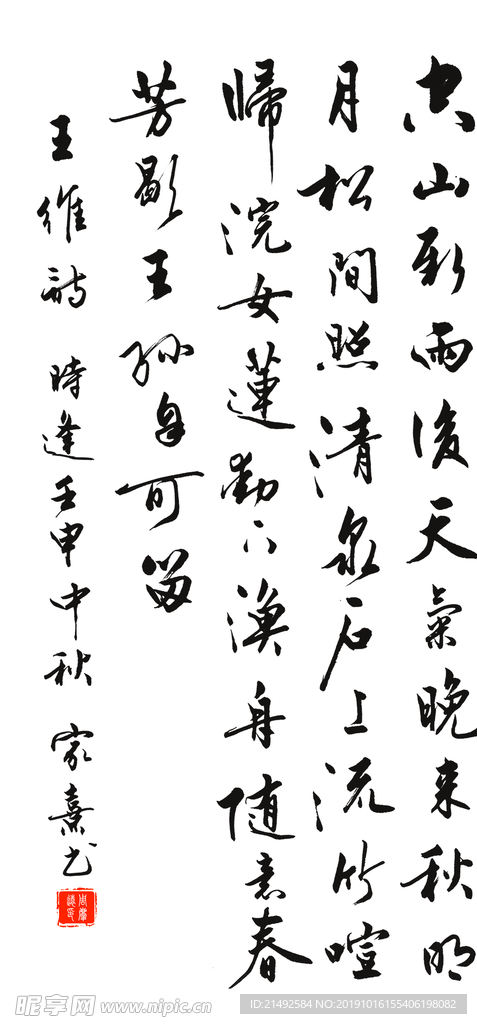 空山新雨後天氣晚來秋明
月松間照清泉石上流竹喧
歸浣女蓮動下漁舟隨意春
芳歇王孫自可留
王維詩 時逢壬申中秋 家熹书
昵享网 www.nipic.cn
ID:21492584 NO:20191016155406198082